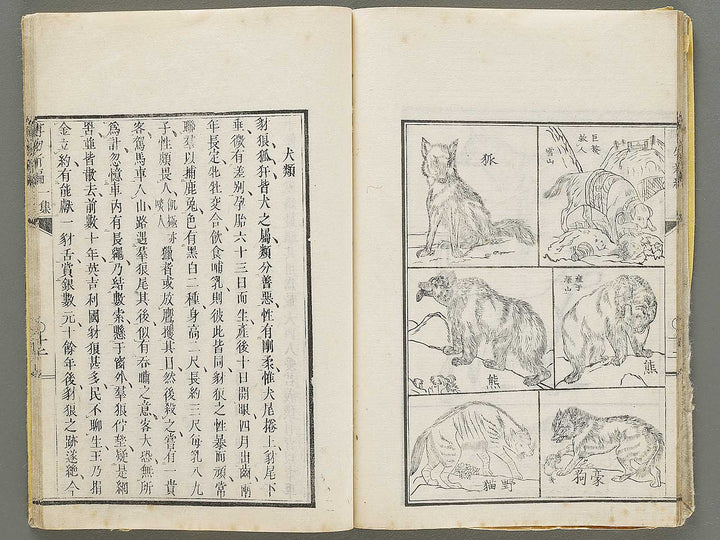 巨獒
救人
雪山
狐
熊
熊
豪狗
野貓
犬類
豺狼狐犴皆犬之屬、類分善惡、性有剛柔、惟犬尾捲上、豺尾下
垂、微有差別、孕胎六十三日而生產、後十日開眼、四月出齒、兩
年長定、牝牡交合、飲食哺乳、則彼此皆同、豺狼之性暴而頑、常
聯羣以捕鹿兔、色有黑白二種、身高二尺、長約三尺、每乳八九
子、性頗畏人、飢極亦啖人獵者或放鷹攫其目、然後殺之、嘗有一貴
客駕馬車入山、路遇羣狼尾其後、似有吞嚙之意、客大恐、無所
為計、忽憶車內有長繩、乃結數索懸于窗外、羣狼佇望、疑是網
罟、並皆散去、前數十年、英吉利國豺狼甚多、民不聊生、王乃捐
金立約、有能獻一豺舌、賞銀數元、十餘年後、豺狼之跡遂絕、今